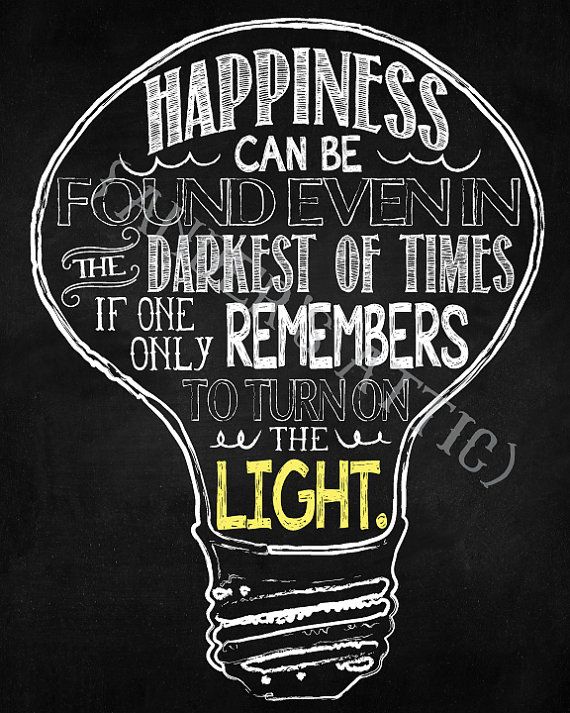 HAPPINESS
CAN BE
FOUND EVEN IN
THE DARKEST OF TIMES
IF ONE
ONLY REMEMBERS
TO TURN ON
THE
LIGHT.